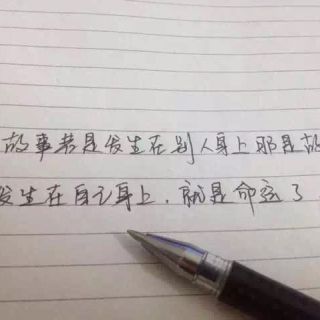 故事若是发生在别人身上那是故
发生在自己身上，就是命运了